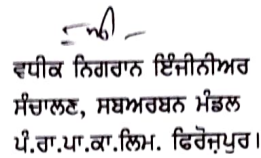 ਵਧੀਕ ਨਿਗਰਾਨ ਇੰਜੀਨੀਅਰ
ਸੰਚਾਲਣ, ਸਬਅਰਬਨ ਮੰਡਲ
ਪੰ.ਰਾ.ਪਾ.ਕਾ.ਲਿਮ. ਫਿਰੋਜ਼ਪੁਰ।